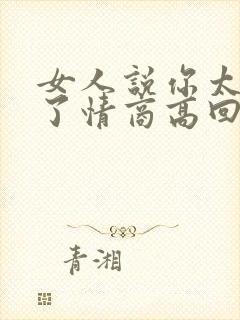 女人説你太
了情商高回
青湘